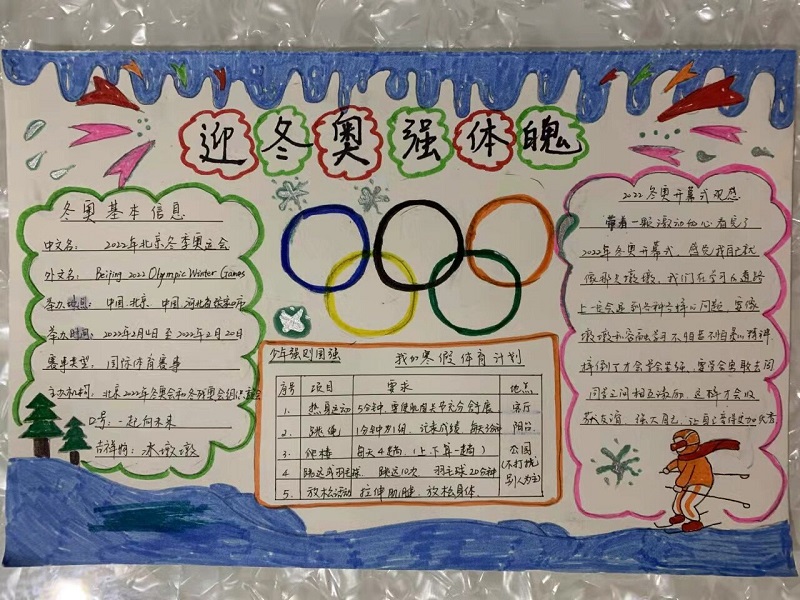 迎冬奥强体魄
冬奥基本信息
中文名：2022年北京冬季奥运会
外文名：Beijing 2022 Olympic Winter Games
举办地点：中国·北京 中国·河北省张家口市
举办时间：2022年2月4日至2022年2月20日
赛事类型：国际体育赛事
主办机构：北京2022年冬奥会和冬残奥会组织委员会
口号：一起向未来
吉祥物：冰墩墩
少年强则国强
我的寒假体育计划
序号 项目 要求 地点
1. 热身运动 5分钟，要使肌肉关节充分舒展 客厅
2. 跳绳 1分钟为1组，记录成绩 每天3分钟 阳台
3. 爬楼 每天4趟，(上下算一趟) 公园
4 跳远或羽毛球 跳远10次 羽毛球20分钟 (不打扰
5. 放松活动 拉伸肌腱，放松身体 别人为主)
2022冬奥开幕式观感
带着一颗激动的心看完了
2022年冬奥开幕式，感觉我自己就
像那只墩墩，我们在学习的道路
上一定会遇到各种各样的问题，要像
墩墩和容融
摔倒了才会学会坚强，要学会勇敢
同学之间相互激励，这样才会收
获友谊，强大自己，让自己变得更加优秀